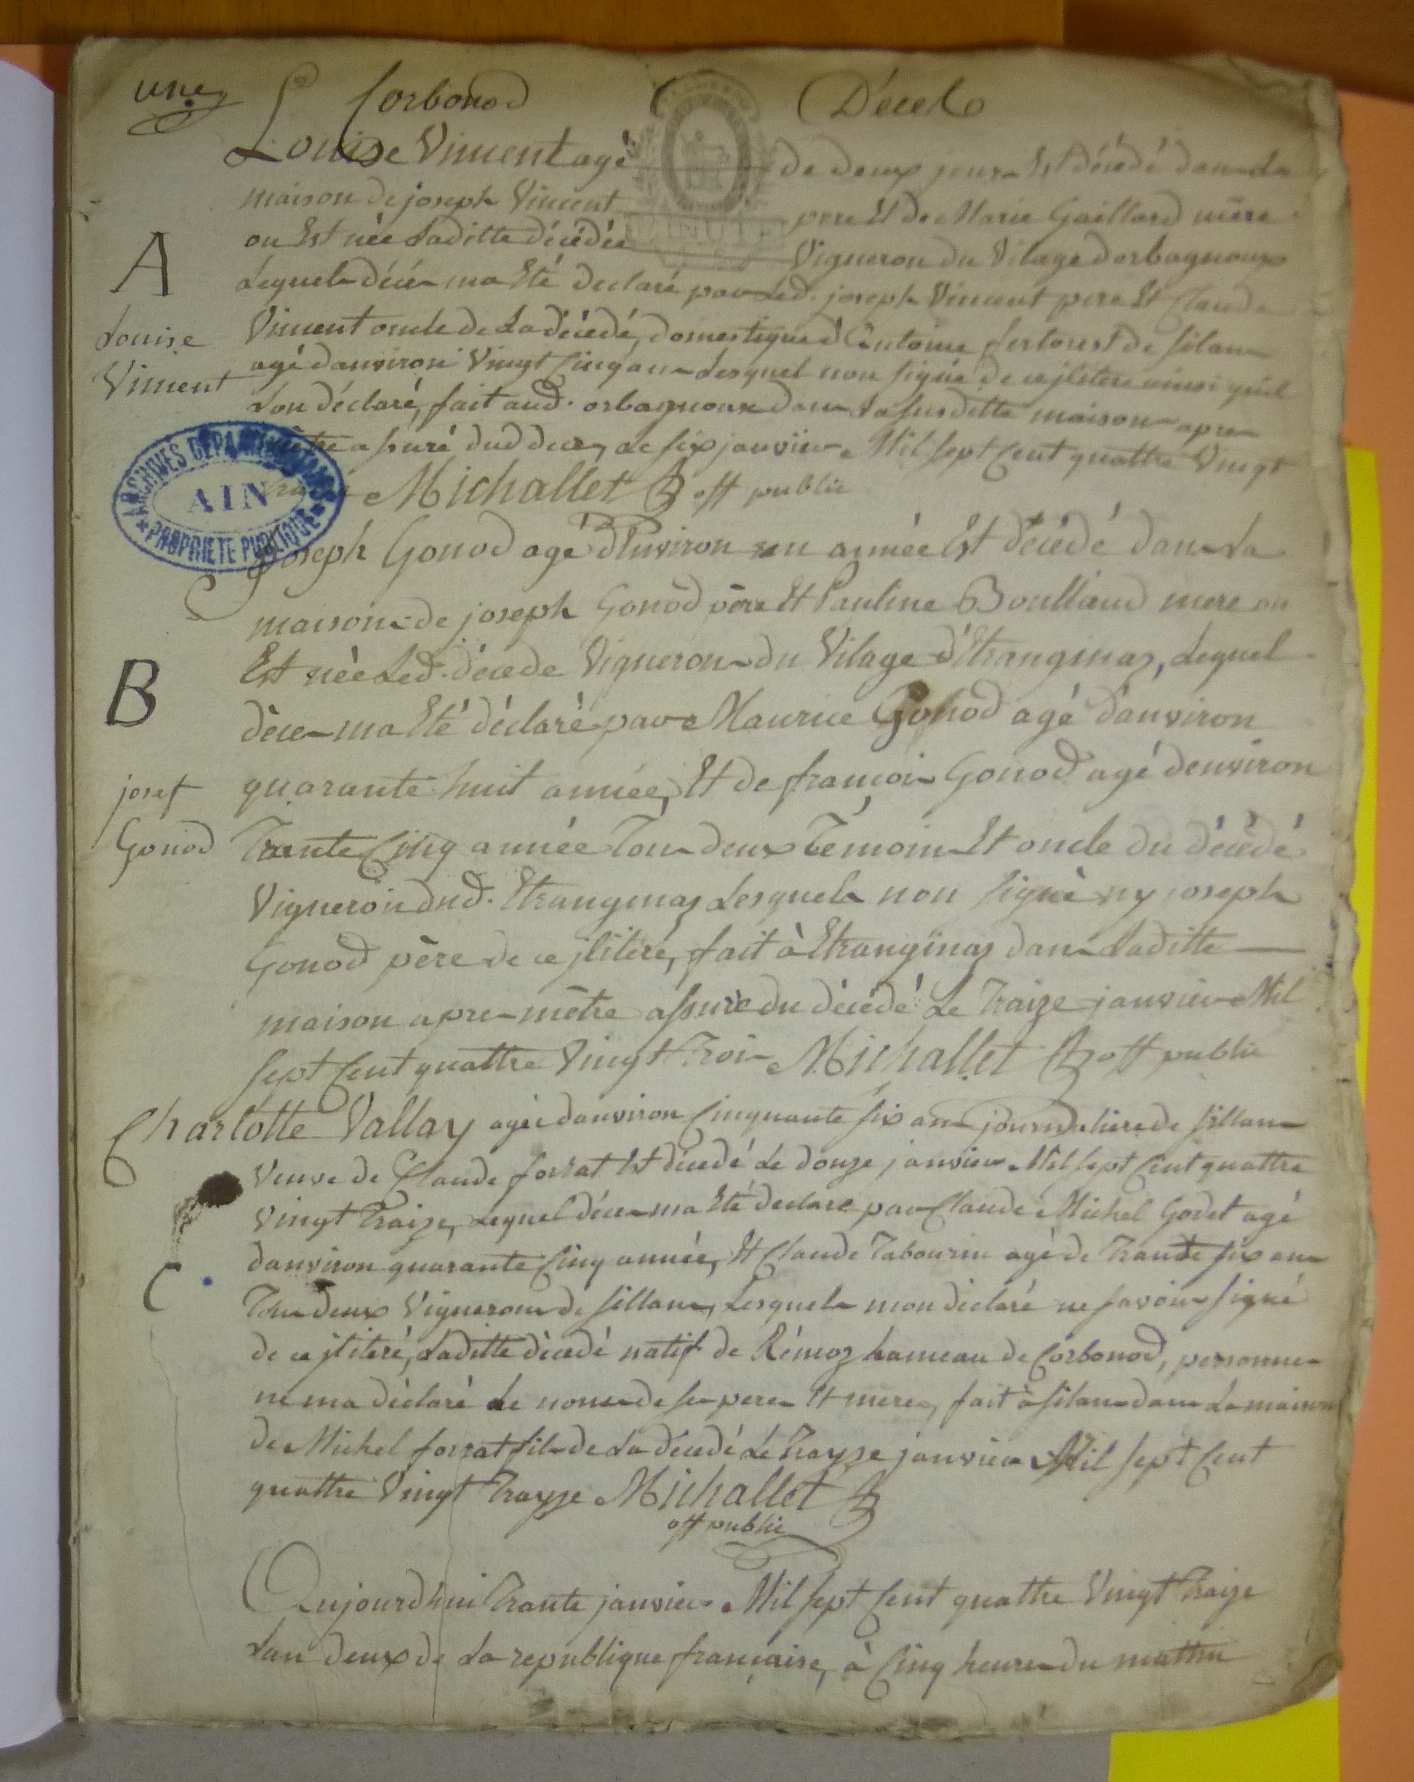 une
Corbonod
Décel
Louise Viment agé de deux jours Est décédé dans La
maison de joseph Viment pere Et de Marie Gaillard mère
ou Est née Laditte décédée Vigneron du Vilage dorbagnoux
Lequel décés ma Eté declaré par Led. joseph Viment pere Et Claude
Viment oncle de La décédé, domestique d'Antoine de silan
agé d'anviron Vingt Cinq ans Lesquel non signé de ce
Lon déclaré, fait aud. orbagnoux dans La susditte maison apres
assuré dud deces, ce six janvier Mil sept Cent quattre Vingt
Michallet off public
A
Louise
Viment
ARCHIVES DEPARTEMENTALES
AIN
PROPRIETE PUBLIQUE
Joseph Gonod agé d'Environ un année Est décédé dans La
maison de joseph Gonod père Et Pauline Boulland mere ou
Est née Led. décede Vigneron du Vilage d'Etranginaz, Lequel
déces ma Eté déclaré par Maurice Gonod agé d'anviron
quarante huit année, Et de françois Gonod agé denviron
Trante Cinq année Tous deux Témoins Et oncle du décédé
Vigneron dud. Etranginaz Lesquels non signé ny joseph
Gonod père de ce jlitéré, fait à Etranginaz dans Laditte
maison apres mètre assuré du décédé Le Traize janvier Mil
sept Cent quattre Vingt Trois Michallet off public
B
josef
Gonod
Charlotte Vallay agée danviron Cinquante six ans journaliere de sillan
Veuve de Claude forrat Est décédé Le douze janvier Mil sept Cent quattre
Vingt Traize, Lequel déces ma Eté declaré par Claude Michel Godet agé
danviron quarante Cinq année, Et Claude Tabourin agé de Trante six ans
Tous deux Vignerons de sillan, Lesquels mon déclaré ne savoir signé
de ce jlitéré, Laditte décedé natif de Rémoz hameau de Corbonod, personne
ne ma déclaré Le nom de ses pere Et mere, fait à silan dans La maison
de Michel forrat fils de La décedé Le Trayze janvier Mil sept Cent
quattre Vingt Trayze Michallet
off public
C
Aujourdhui Trante janvier Mil sept Cent quattre Vingt Traize
Lan deux de La republique française, à Cinq heures du mattin